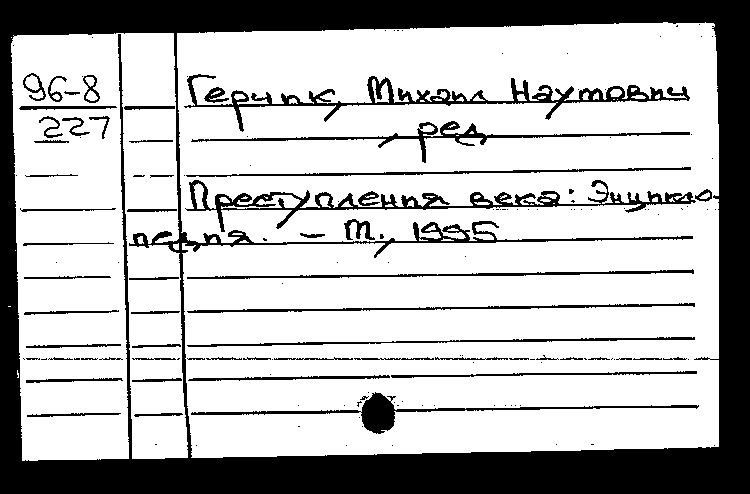 96-8 Герчик, Михаил Наумович
227 , ред.
Преступления века: Энцикло-
педия. – М., 1995